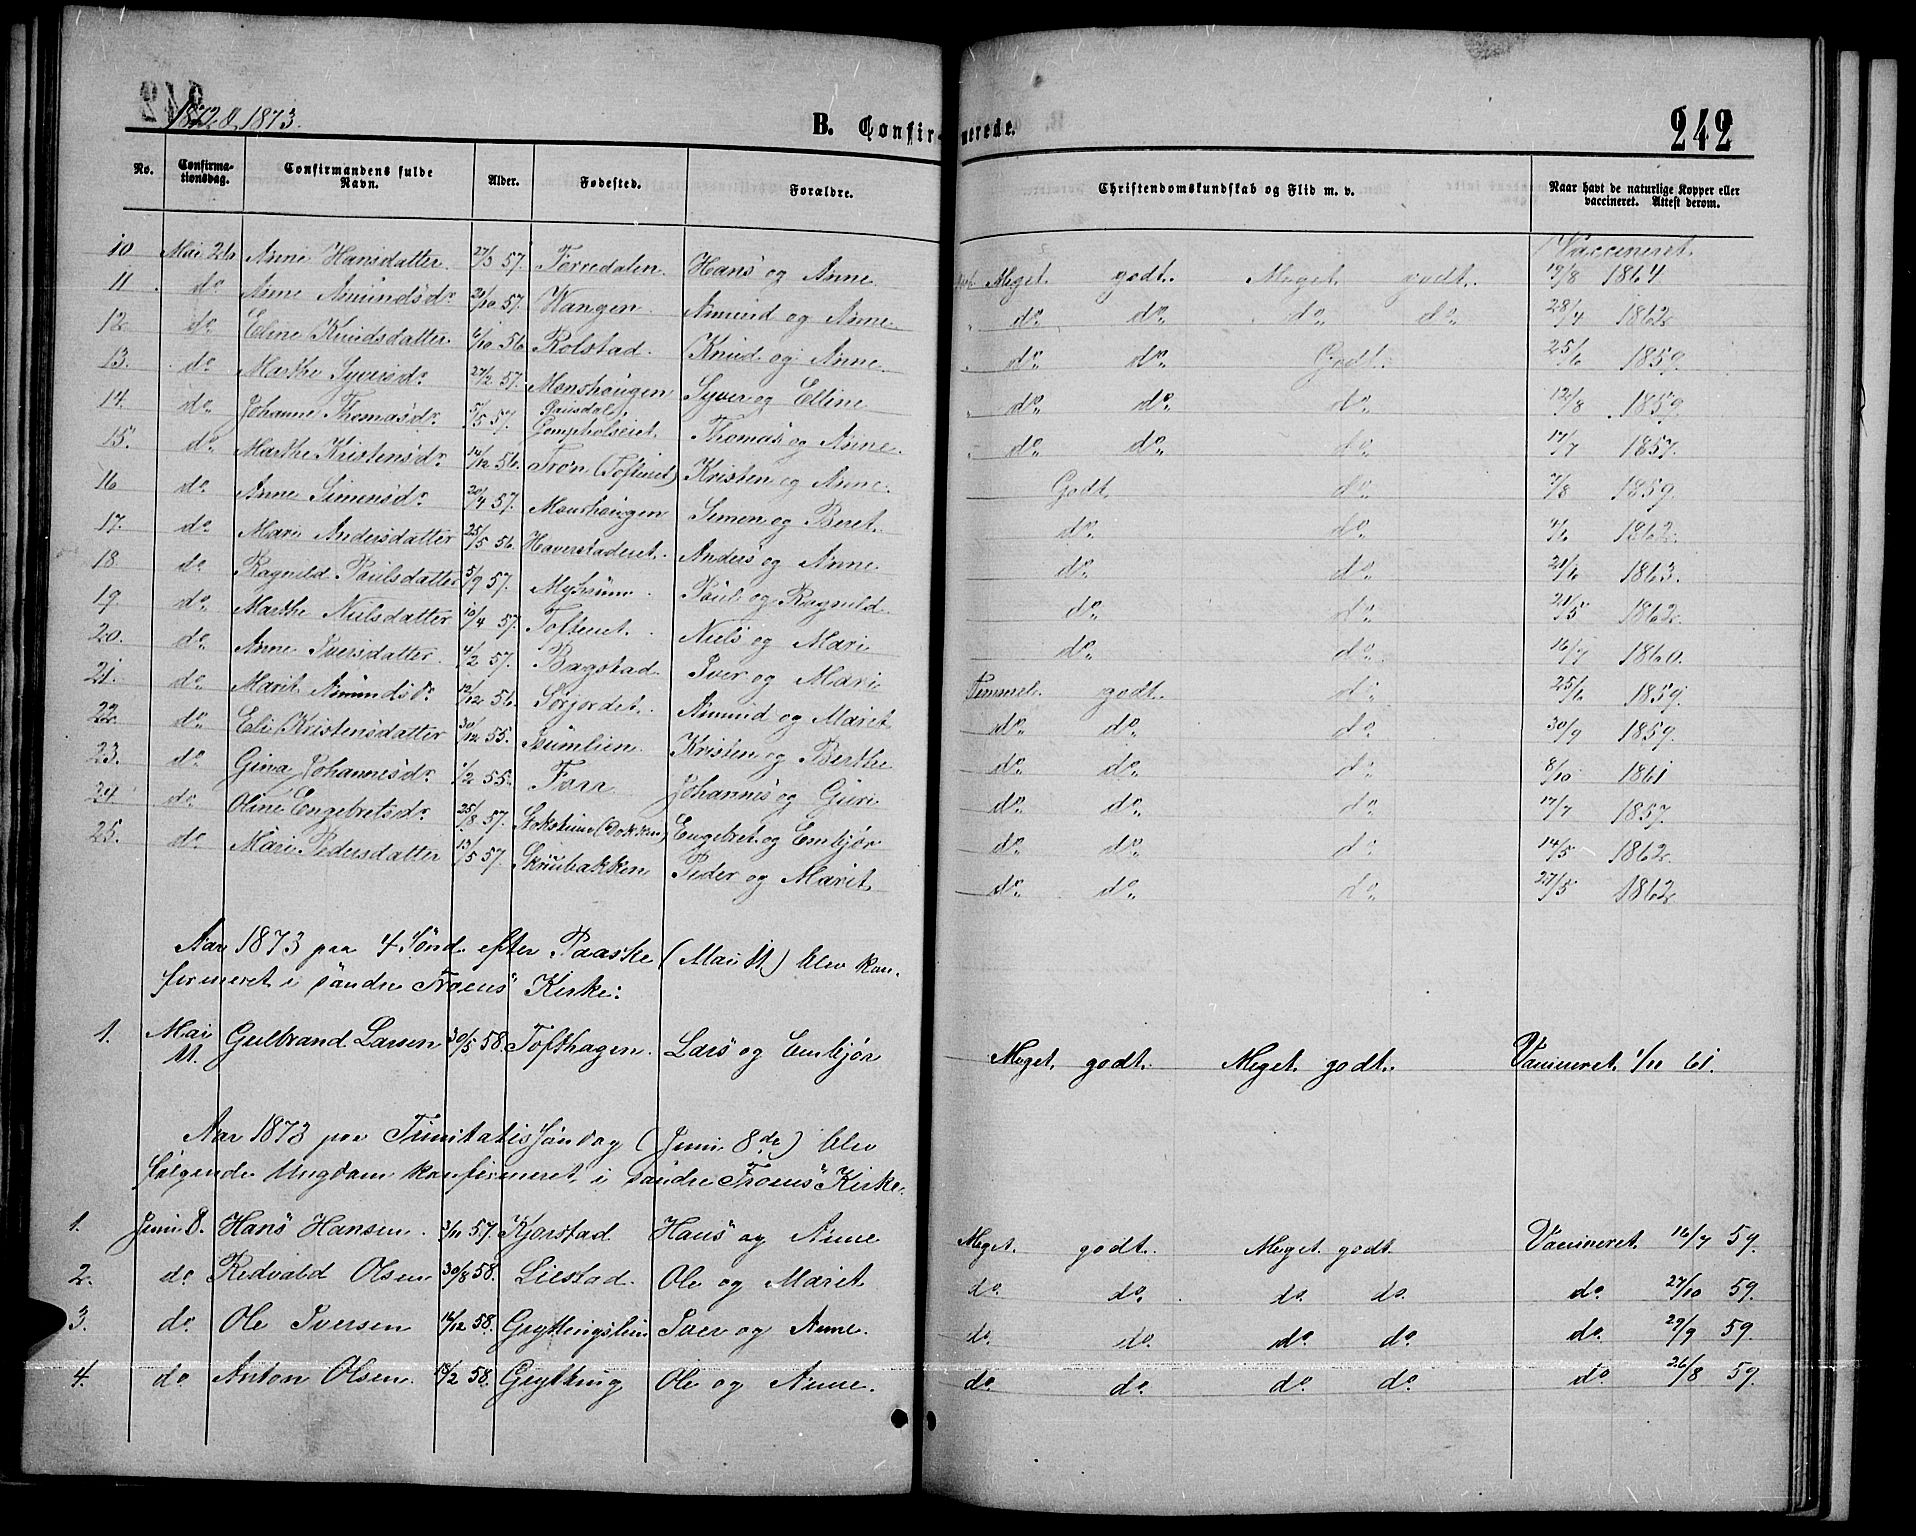 1872 & 1873.
B. Confirmerede.
242
No. Confirmationsdag. Confirmandens fulde Navn. Alder. Fødested. Forældre. Christendomskundskab og Flid m. v. Naar havt de naturlige Kopper eller vaccineret. Attest derom.
Vaccineret
10 Mai 26 Anne Hansdatter 27/3 57. Hans og Anne Meget godt. Meget godt. 19/8 1864
11 do Anne Amundsdr 57. Wangen Amund og Anne do do do do 28/7 1862
12 do Eline Knudsdatter 6/10 56 Rolstad. Knud og Anne do do Godt. 25/6 1859.
13. do Marthe Syversdr 27/2 57. Monshougen Syver og Elline do do do 12/8 1859
14. do Johanne Thomasdr 5/5 57. Thomas og Anne. do do do 17/7 1857.
15. do Marthe Kristensdr 14/12 56. Tron (Tofteiet) Kristen og Anne. Godt do 7/8 1859.
16 do Anne Simensdr 20/4 57. Monshougen Simen og Beret do do 4/6 1862
17. do Mari Andersdatter 25/5 56. Haverstadeiet. Anders og Anne do do 21/6 1863.
18. do Ragnild Paulsdatter 5/9 57. Mysuen Paul og Ragnild do do 21/5 1862.
19. do Marthe Nielsdatter 10/4 57. Tofteiet. Niels og Mari do do 16/7 1860.
20. do Anne Iversdatter. 4/2 57. Bagstad Iver og Mari Temmel. godt. do 25/6 1859.
21. do Marit Amundsdr 12/12 56 Sørjordet. Amund og Marit do do do 30/9 1859.
22 do Eli Kristensdatter 30/12 55. Isumlien Kristen og Berthe do do do 8/10 1861
23. do Gina Johannesdr 1/2 55. Forr Johannes og Guri do do do 17/7 1857.
24. do Oline Engebretsdr 25/8 57. Engebret og Embjør do do do 14/5 1862
25. do Mari Pedersdatter 13/5 57. Skrubakken Peder og Marit do do do 27/5 1862
Aar 1873 paa 4 Sønd. efter Paaske (Mai 11) blev kon-
firmeret i søndre Froens Kirke:
1. Mai 11. Gulbrand Larsen 30/5 58. Tofthagen. Lars og Embjør Meget godt. Meget godt. Vaccineret 1/11 61.
Aar 1873 paa Trinitatis Søndag (Juni 8de) blev
følgende Ungdom konfirmeret i søndre Froens Kirke.
1. Juni 8. Hans Hansen. 3/11 57. Kjorstad Hans og Anne Meget godt. Meget godt Vaccineret 16/7 59.
2. do Redvald Olsen 30/8 58. Liestad. Ole og Marit do. do. do. do. do. 27/10 59.
3. do. Ole Iversen 58. Gryttingslien Iver og Anne. do. do. do. do. do. 29/9 59.
4. do. Anton Olsen. 58. Grytting Ole og Anne. do. do. do. do. do. 26/8 59.